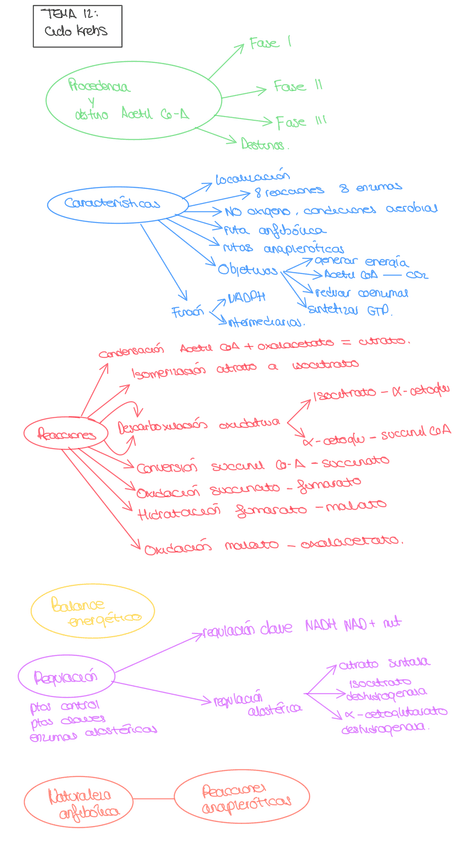 TEMA 12:
Ciclo Krebs
Fase I
Procedencia
y
destino Acetil Co-A
Fase II
Fase III
Destinos.
Localización
Características
8 reacciones 8 enzimas
NO oxígeno, condiciones aerobias
ruta anfibólica
rutas anapleróticas
Objetivos
generar energía
Acetil CoA — CO2
reducir coenzimas
sintetizar GTP.
Función
NADPH
intermediarios.
condensación Acetil CoA + oxalacetato = citrato.
Isomerización citrato a isocitrato
Reacciones
Descarboxilación oxidativa
Isocitrato - α-cetoglu
α-cetoglu - succinil CoA
Conversión succinil Co-A - succinato
Oxidación succinato - fumarato
Hidratación fumarato - malato
Oxidación malato - oxalacetato.
Balance
energético
regulación clave NADH NAD+ mit
Regulación
ptos control
ptos claves
enzimas alostéricas
regulación
alostérica
citrato sintasa
Isocitrato
deshidrogenasa
α-cetoglutarato
deshidrogenasa.
Naturaleza
anfibólica
Reacciones
anapleróticas